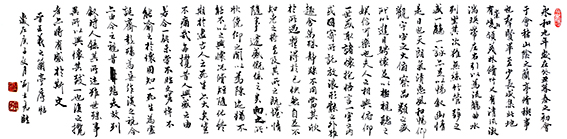 永和九年歲在癸丑暮春之初會
于會稽山陰之蘭亭修禊事
也群賢畢至少長咸集此地
有崇山峻領茂林修竹又有清流激
湍暎帶左右引以為流觴曲水
列坐其次雖無絲竹管弦之
盛一觴一詠亦足以暢敘幽情
是日也天朗氣清惠風和暢仰
觀宇宙之大俯察品類之盛
所以遊目騁懷足以極視聽之
娛信可樂也夫人之相與俯仰
一世或取諸懷抱悟言一室之內
或因寄所託放浪形骸之外雖
趣舍萬殊靜躁不同當其欣
於所遇暫得於己快然自足不
知老之將至及其所之既惓情
隨事遷感慨係之矣向之所
欣俛仰之間以為陳迹猶不
能不以之興懷況修短隨化終
期於盡古人云死生亦大矣豈
不痛哉每攬昔人興感之由
若合一契未嘗不臨文嗟悼不
能喻之於懷固知一死生為虛
誕齊彭殤為妄作後之視今
亦由今之視昔悲夫故列
敘時人錄其所述雖世殊事
異所以興懷其致一也後之攬
者亦將有感於斯文